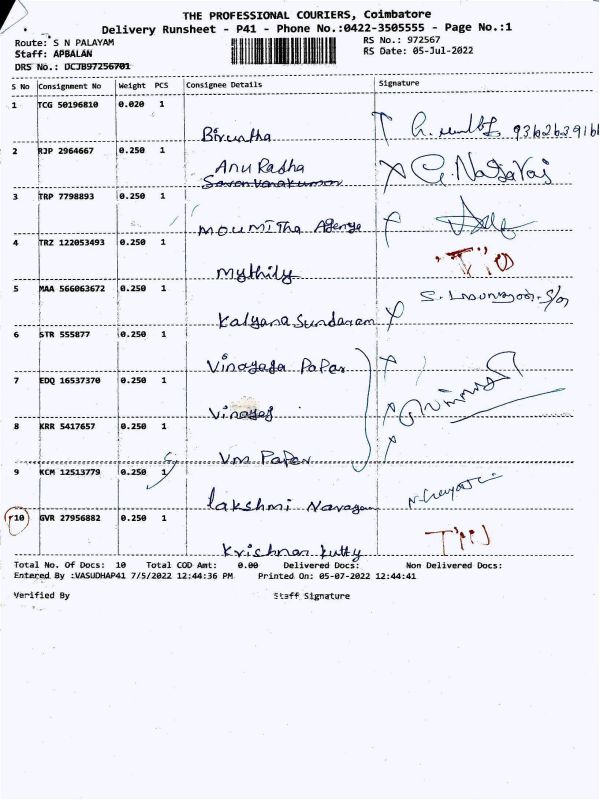 THE PROFESSIONAL COURIERS, Coimbatore
Delivery Runsheet - P41 - Phone No.:0422-3505555 - Page No.:1
Route: S N PALAYAM RS No.: 972567
Staff: APBALAN RS Date: 05-Jul-2022
DRS No.: DCJB97256701
S No Consignment No Weight PCS Consignee Details Signature
1 TCG 50196810 0.020 1
Biruntha
2 RJP 2964667 0.250 1
Anu Radha
3 TRP 7798893 0.250 1
G. Nagaraj
moumitha Agencye
4 TRZ 122053493 0.250 1
Mythily
5 MAA 566063672 0.250 1
Kalyana Sundaram
6 STR 555877 0.250 1
Vinayaga PaPar
7 EDQ 16537370 0.250 1
Vinayag
8 KRR 5417657 0.250 1
Vm PaPar
9 KCM 12513779 0.250 1
lakshmi Narayan
10 GVR 27956882 0.250 1
Krishnan kutty
Total No. Of Docs: 10 Total COD Amt: 0.00 Delivered Docs: Non Delivered Docs:
Entered By :VASUDHAP41 7/5/2022 12:44:36 PM Printed On: 05-07-2022 12:44:41
Verified By Staff Signature